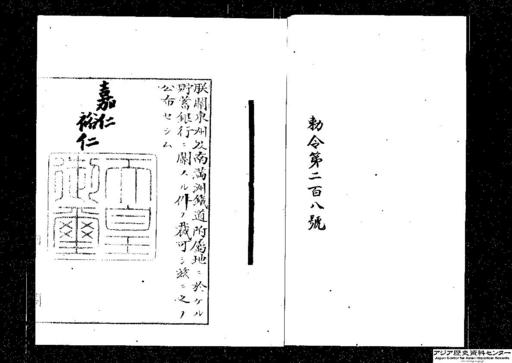 勅令第二百八號
朕關東州及南滿洲鐵道附屬地ニ於ケル
貯蓄銀行ニ關スル件ヲ裁可シ茲ニ之ヲ
公布セシム
嘉仁
裕仁
天皇
御璽
アジア歴史資料センター
Japan Center for Asian Historical Records